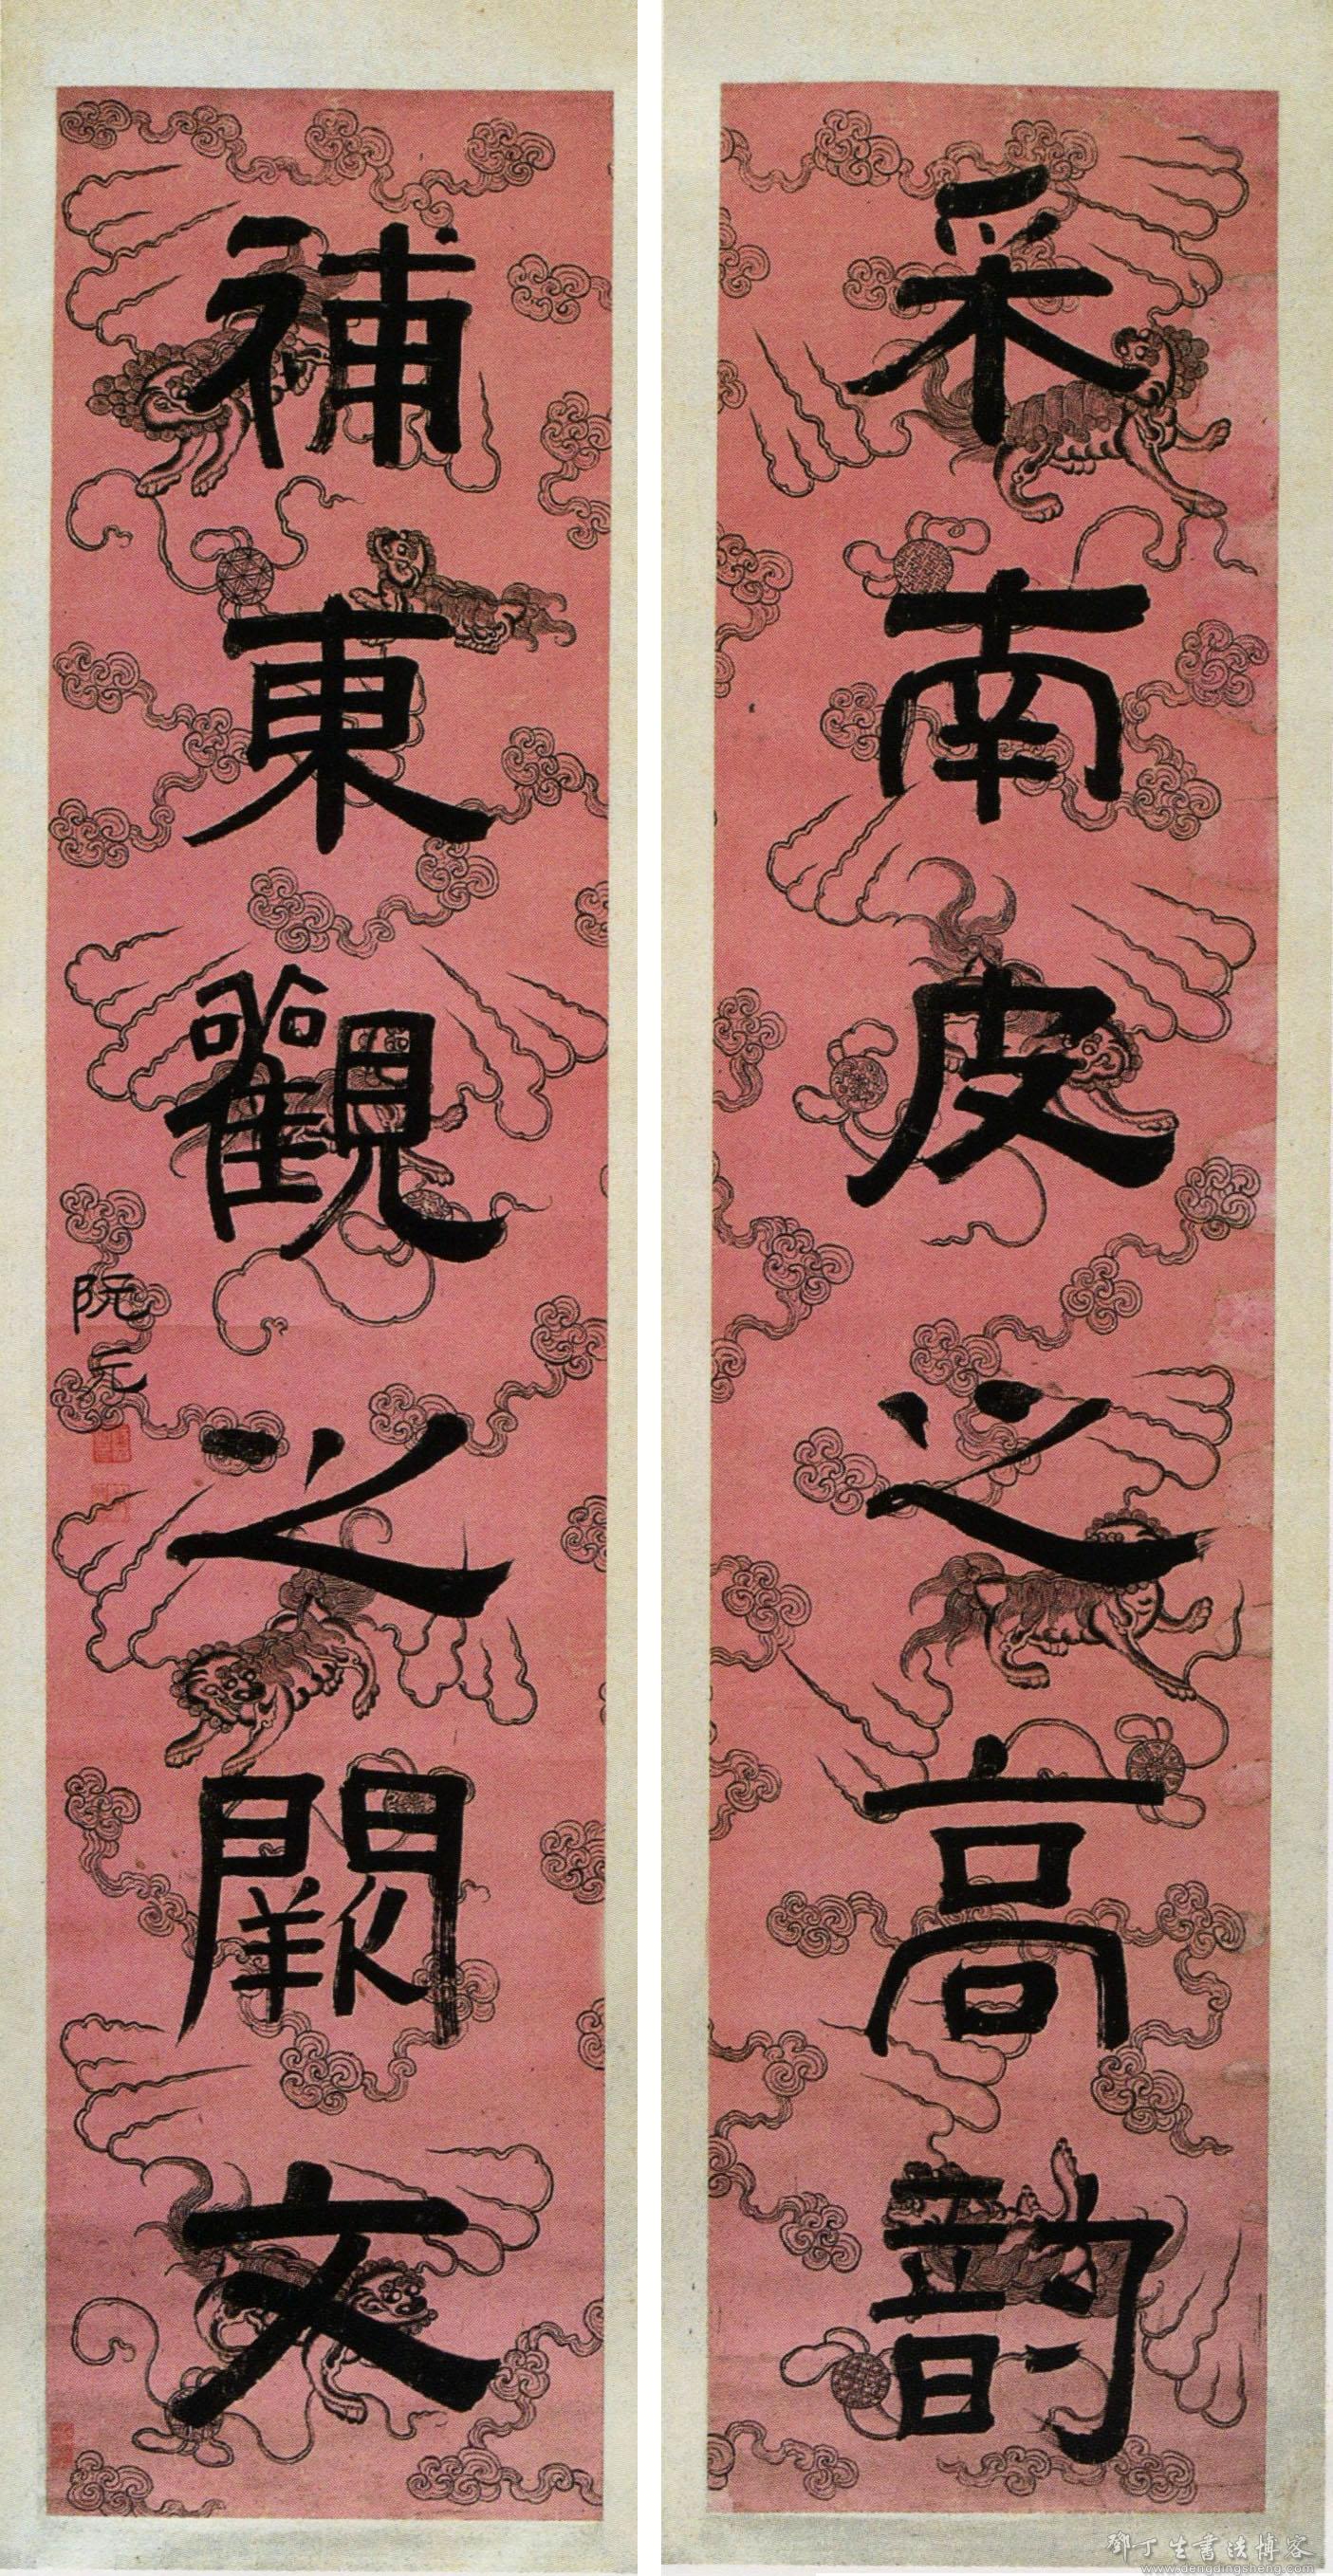 采南皮之高韵
補東觀之闕文
阮元
鄧丁生書法博客
www.dengdingsheng.com